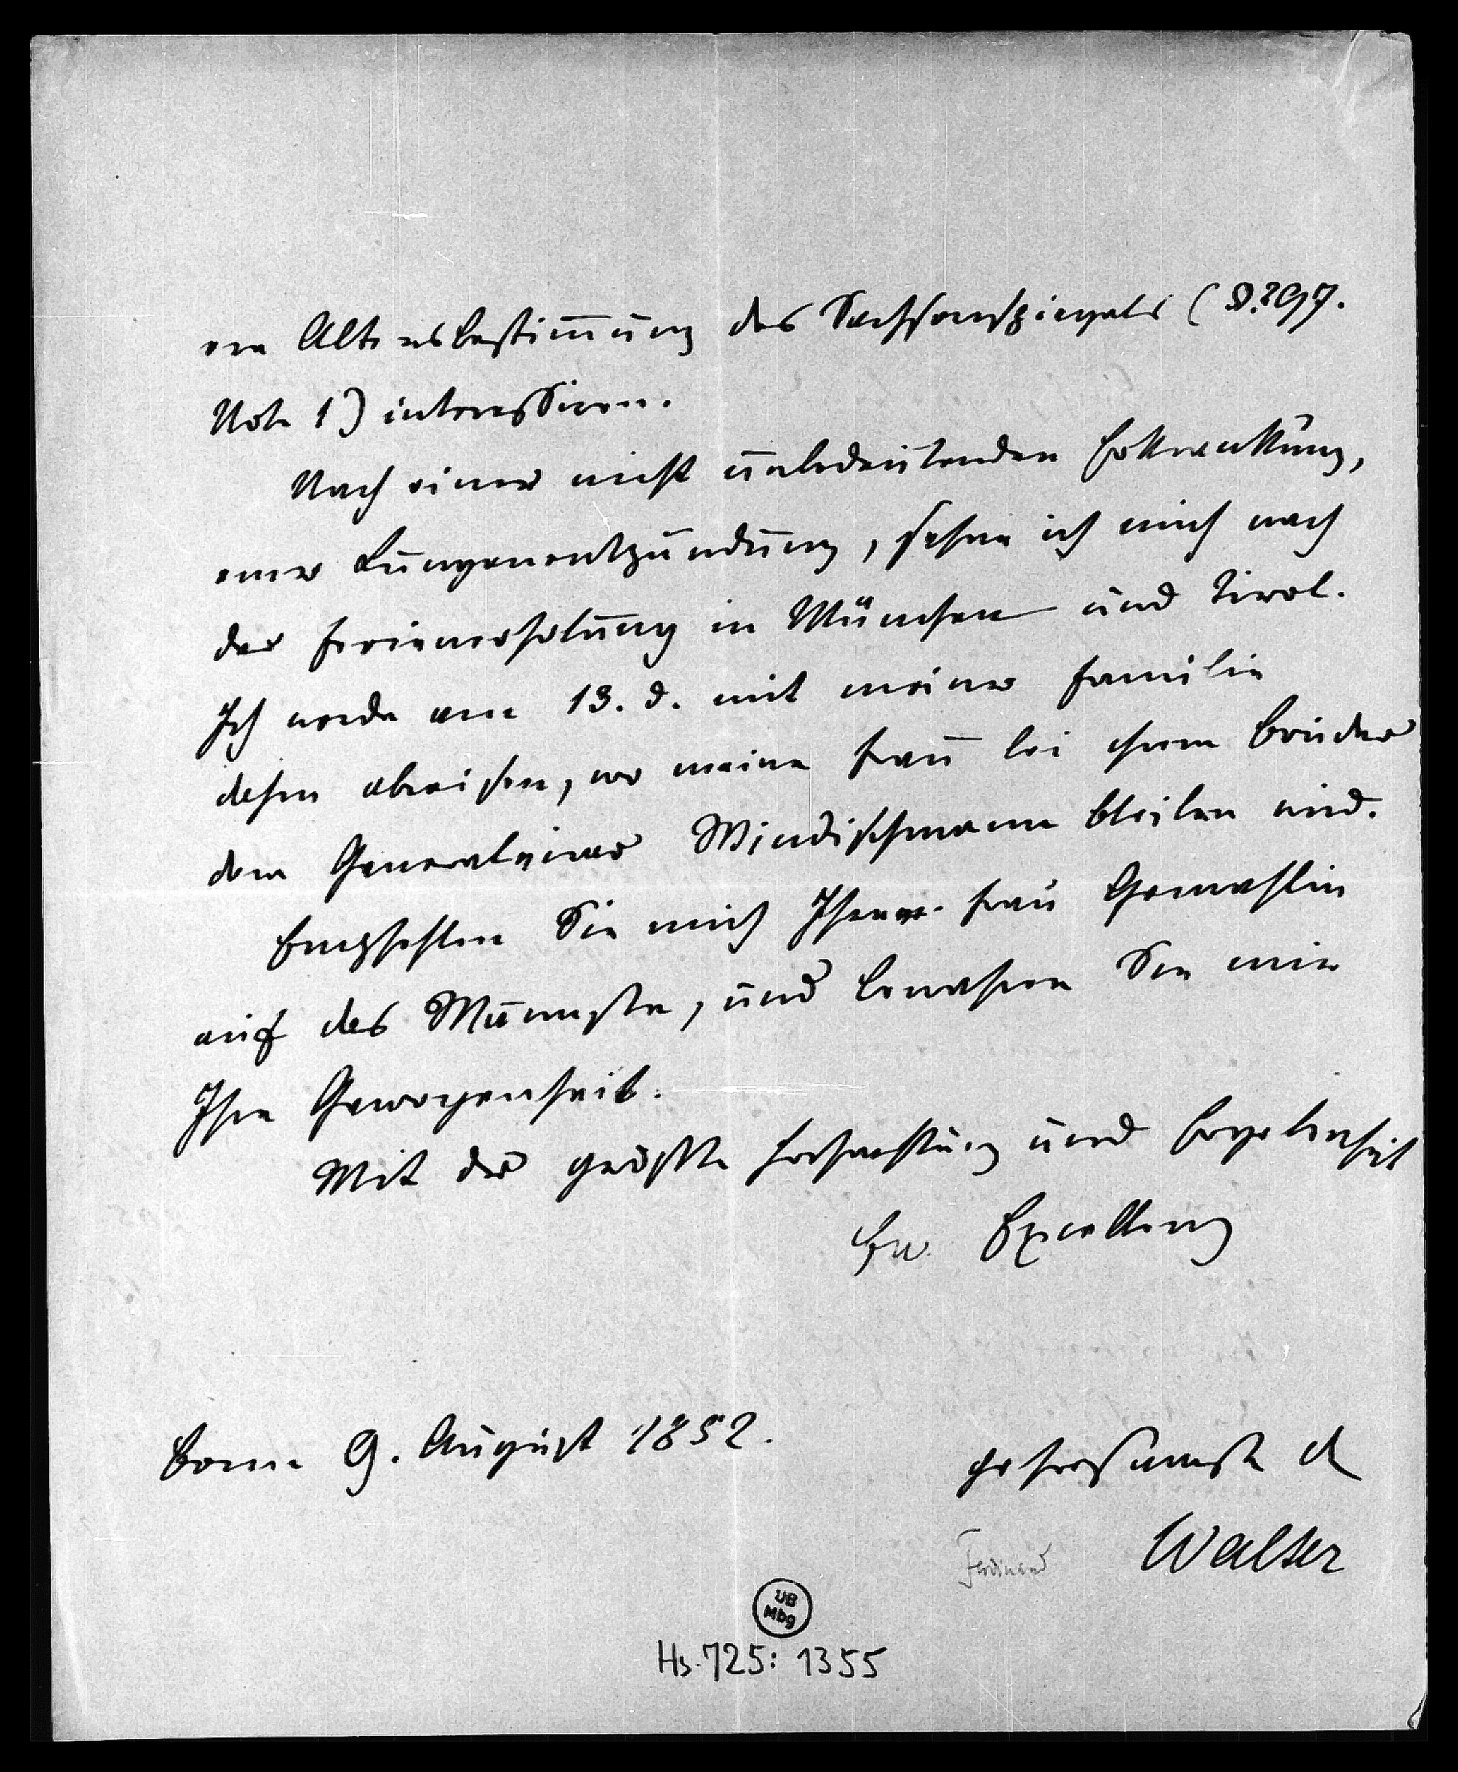 Altersbestimmung des Sachsenspiegels (S. 297.
Note 1) interessiren.
Nach einer nicht unbedeutenden Erkrankung,
einer Lungenentzündung, sehne ich mich nach
der Ferienerholung in München und Tirol.
Ich werde am 13. d. mit meiner Familie
dahin abreisen, wo meine Frau bei ihrem Bruder
dem Generalvicar Windischmann bleiben wird.
Empfehlen Sie mich Ihrer Frau Gemahlin
auf das Wärmste, und bewahren Sie mir
Ihre Gewogenheit.
Mit der größten Hochachtung und Ergebenheit
Ew. Excellenz
Bonn 9. August 1852.
gehorsamster
Ferdinand Walter
UB
Mbg
Hs. 725: 1355